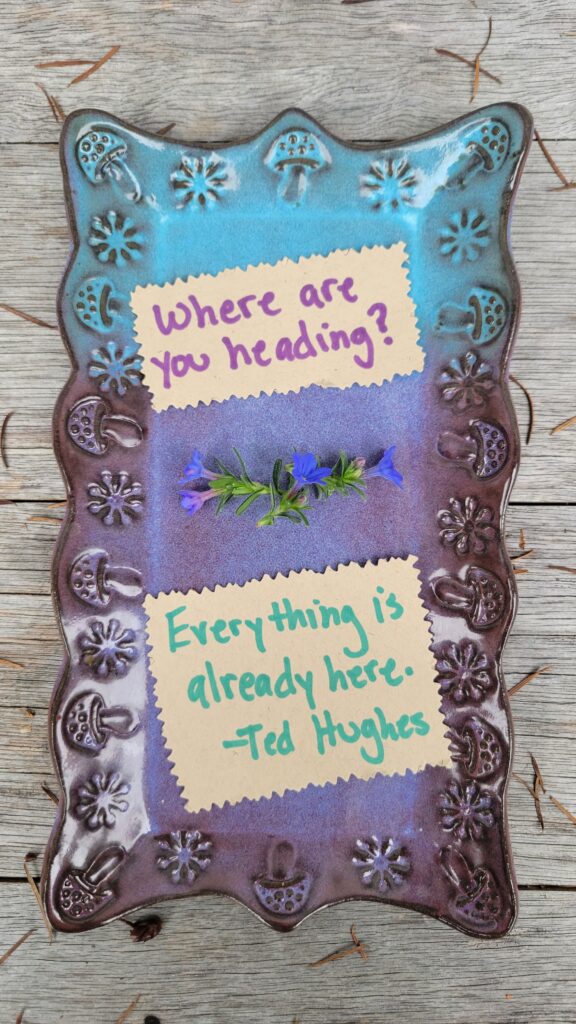 Where are
you heading?
Everything is
already here.
-Ted Hughes